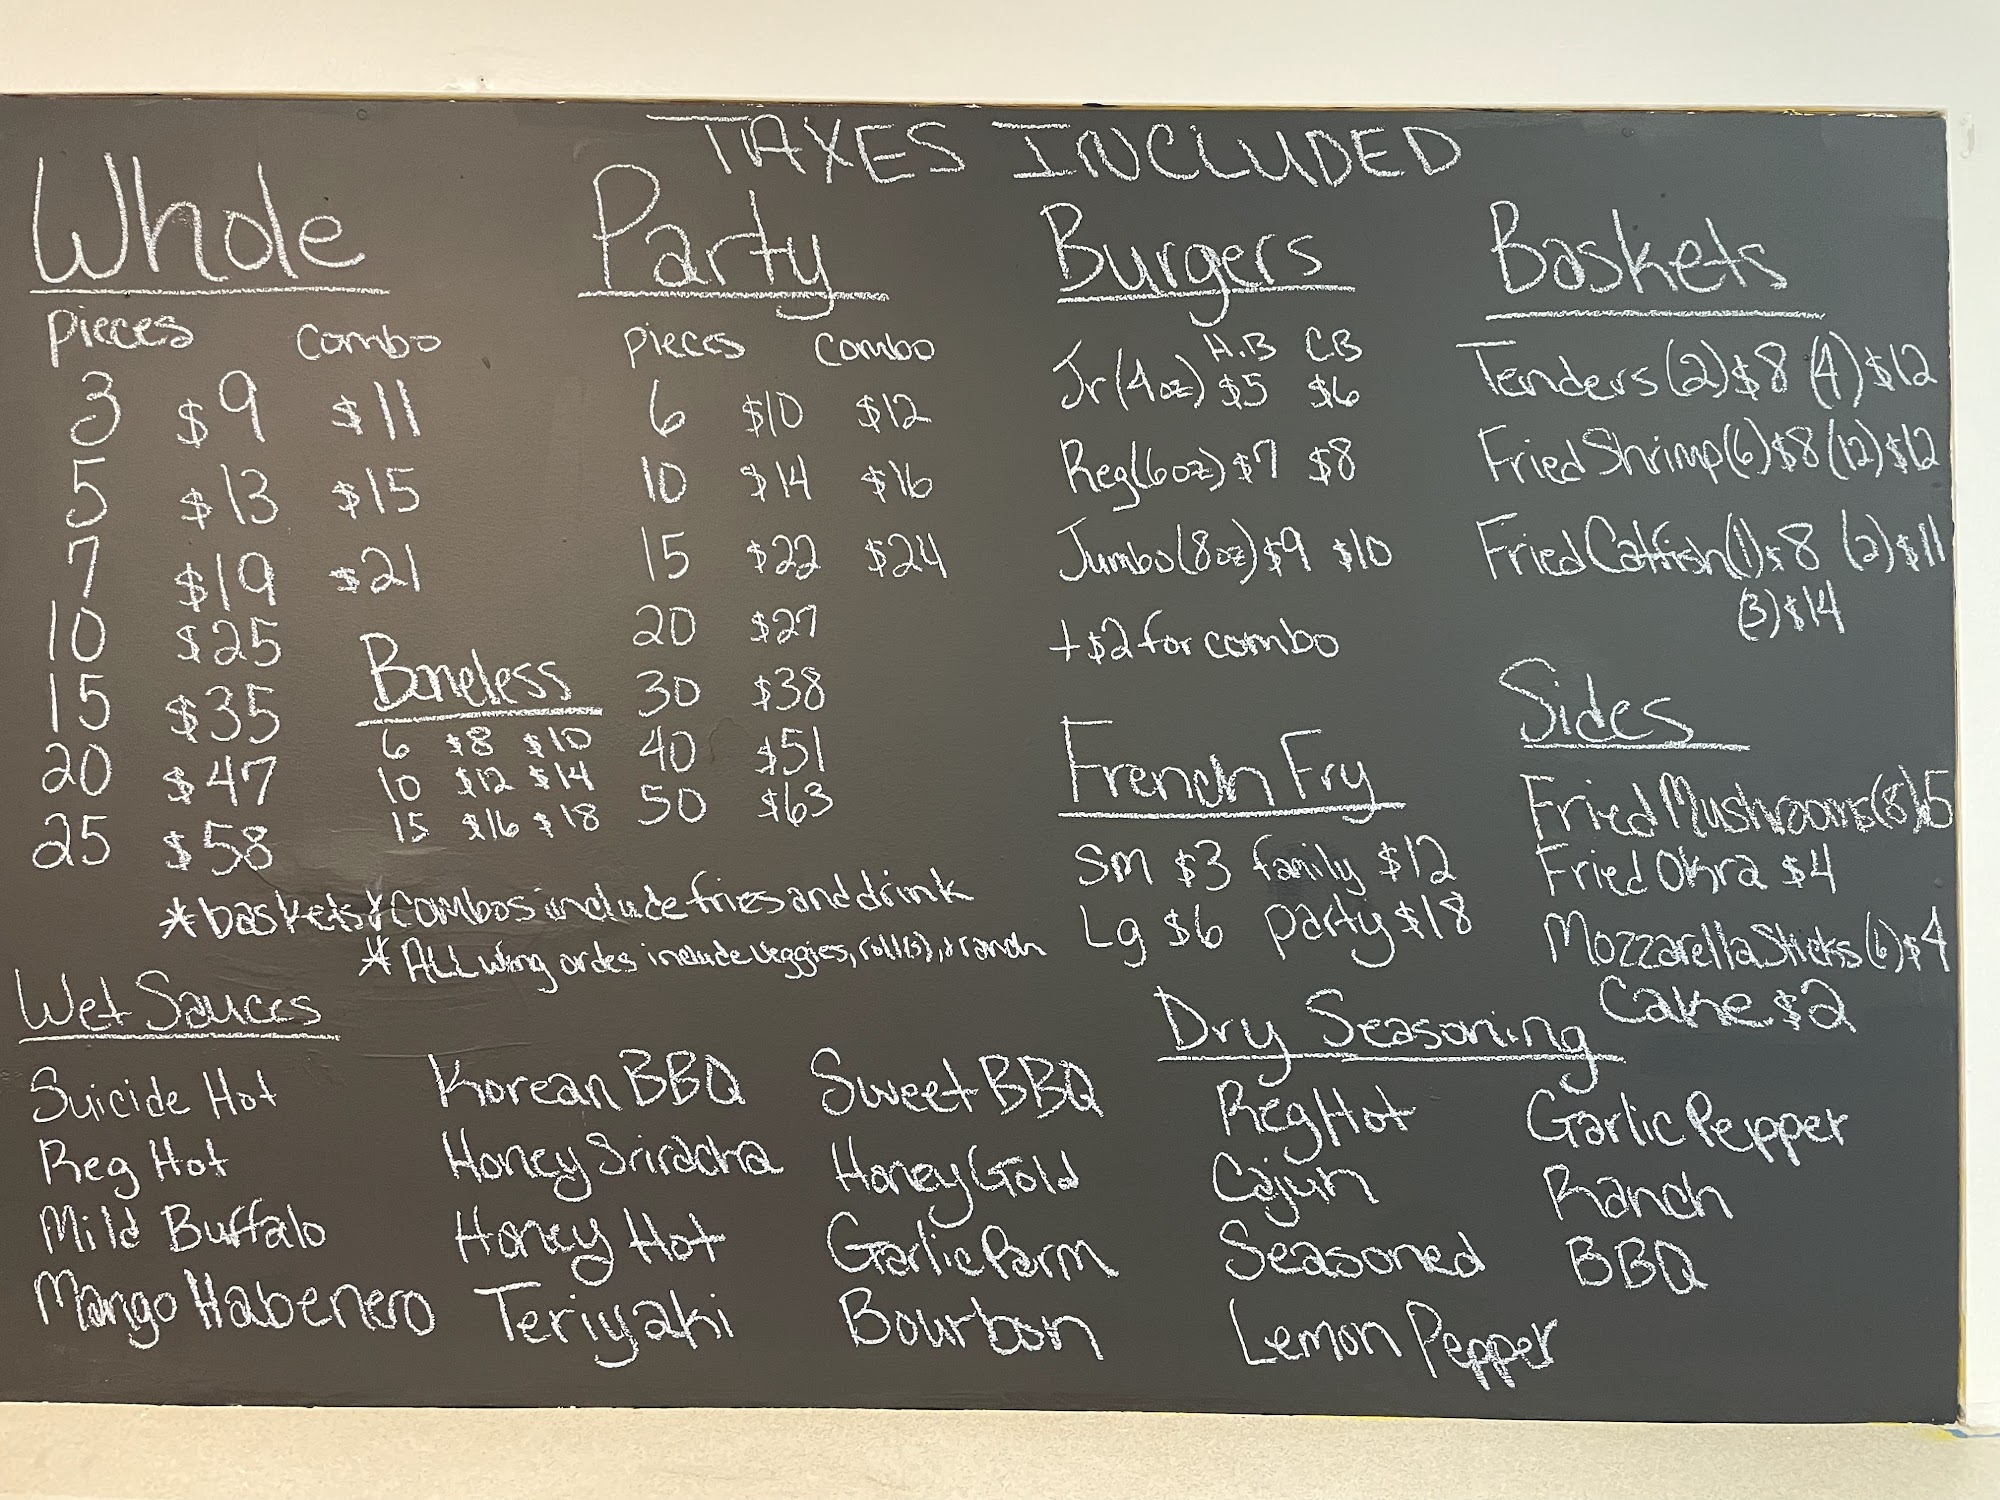 TAXES INCLUDED
Whole
Pieces Combo
3 $9 $11
5 $13 $15
7 $19 $21
10 $25
15 $35
20 $47
25 $58
Boneless
6 $8 $10
10 $12 $14
15 $16 $18
Party
Pieces Combo
6 $10 $12
10 $14 $16
15 $22 $24
20 $27
30 $38
40 $51
50 $63
*baskets & combos include fries and drink
*ALL wing ordes include veggies, roll(s), & ranch
Burgers
H.B C.B
Jr (4oz) $5 $6
Reg (6oz) $7 $8
Jumbo (8oz) $9 $10
+$2 for combo
French Fry
Sm $3 family $12
Lg $6 party $18
Baskets
Tenders (2) $8 (4) $12
Fried Shrimp (6) $8 (12) $12
Fried Catfish (1) $8 (2) $11
(3) $14
Sides
Fried Mushrooms (8) $5
Fried Okra $4
Mozzarella Sticks (6) $4
Cake $2
Wet Sauces
Suicide Hot
Reg Hot
Mild Buffalo
Mango Habenero
Korean BBQ
Honey Sriracha
Honey Hot
Teriyaki
Sweet BBQ
Honey Gold
Garlic Parm
Bourbon
Dry Seasoning
Reg Hot
Cajun
Seasoned
Lemon Pepper
Garlic Pepper
Ranch
BBQ